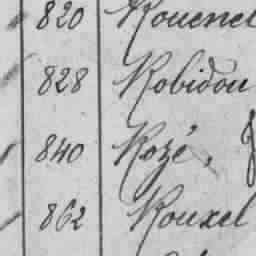 820 Rouenel
828 Robidou
840 Rozé,
862 Rouxel